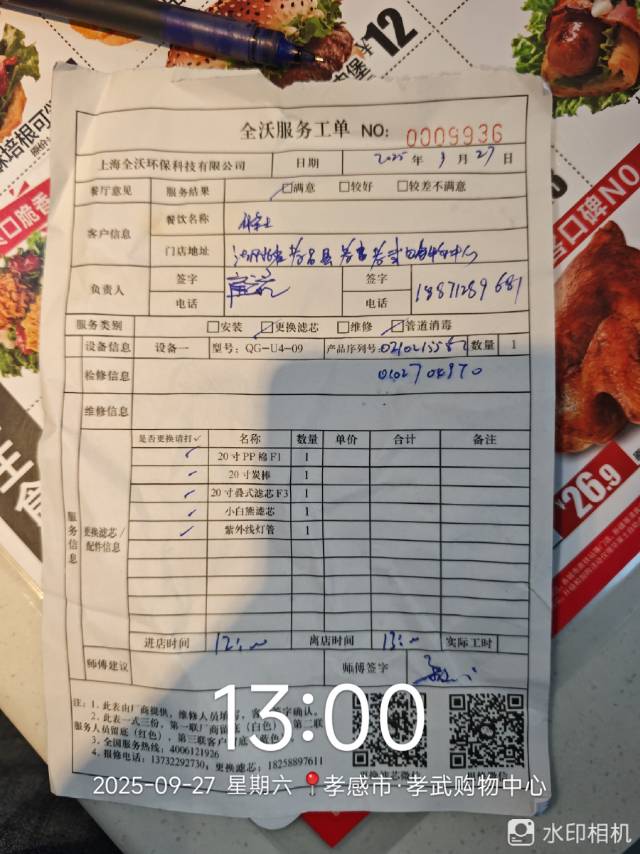 12
全沃服务工单 NO: 0009936
上海全沃环保科技有限公司 日期 2025 年 9 月 27 日
餐厅意见 服务结果 ☑满意 □较好 □较差不满意
客户信息 餐饮名称
门店地址
负责人 签字 签字
电话 电话 18871289681
服务类别 □安装 ☑更换滤芯 □维修 ☑管道消毒
设备信息 设备一 型号: QG-U4-09 产品序列号: 数量 1
检修信息
维修信息
服务信息 更换滤芯/配件信息
是否更换请打✓ 名称 数量 单价 合计 备注
✓ 20寸PP棉F1 1
✓ 20寸炭棒 1
✓ 20寸叠式滤芯F3 1
✓ 小白熊滤芯 1
✓ 紫外线灯管 1
进店时间 12:00 离店时间 13:00 实际工时
师傅建议 师傅签字
注: 1. 此表由厂商提供, 维修人员填写, 客 字确认。
2. 此表一式三份, 第一联厂商留底(白色), 第二联
服务人员留底(红色), 第三联客户 底(蓝色)
3. 全国服务热线: 4006121926
4. 报修电话: 13732292730; 更换滤芯: 18258897611
13:00
2025-09-27 星期六 孝感市·孝武购物中心
¥26.9
水印相机